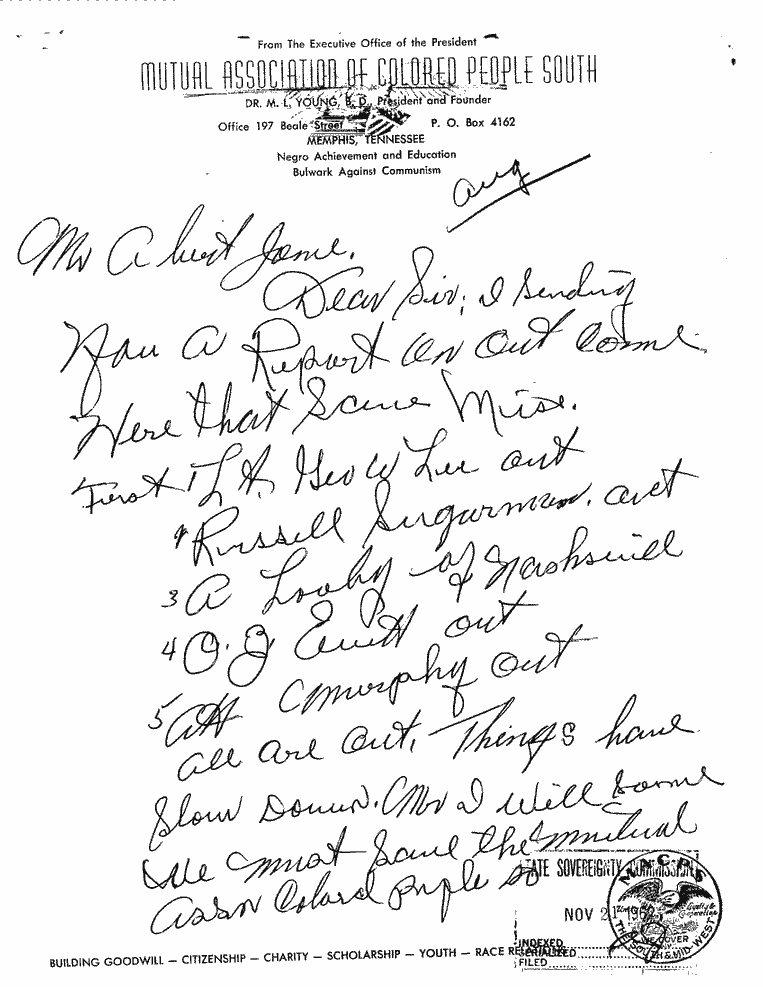 From The Executive Office of the President
MUTUAL ASSOCIATION OF COLORED PEOPLE SOUTH
DR. M. L. YOUNG, B. D., President and Founder
Office 197 Beale Street P. O. Box 4162
MEMPHIS, TENNESSEE
Negro Achievement and Education
Bulwark Against Communism
Aug
Mr Albert Jones.
Dear Sir; I Sending
You A Report on Out Come
Here that Miss.
First 1 Lt. Geo W Lee out
Russell Sugarman. out
3 A Looby of Nashville
4 O. Z Evitt out
5 AH out
all are out. Things have
Slow Down. Mr I will
We must Save the Mutual
Assn Colard People so
STATE SOVEREIGNTY COMMISSION
NOV 21
INDEXED
SERIALIZED
FILED
M.A.C.P.S
THE SOUTH & MID-WEST
BUILDING GOODWILL — CITIZENSHIP — CHARITY — SCHOLARSHIP — YOUTH — RACE